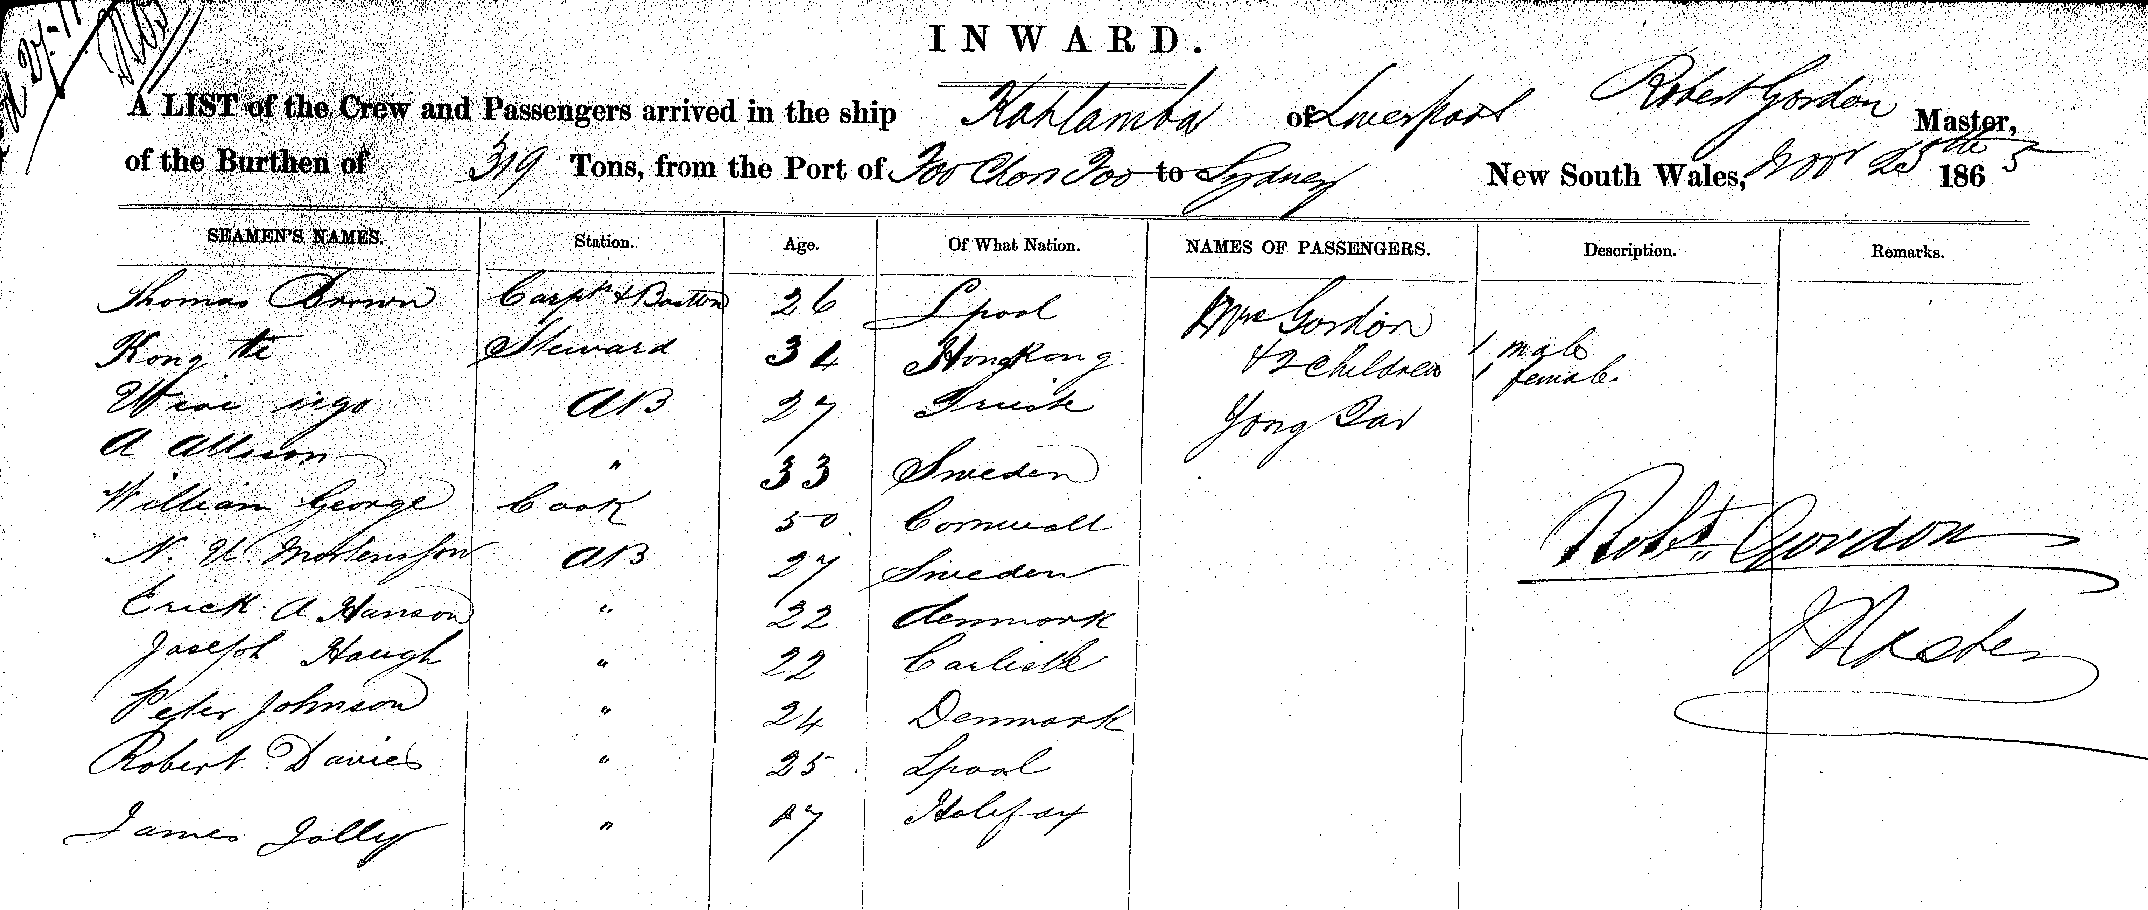 27-11
INWARD.
A LIST of the Crew and Passengers arrived in the ship Kahlamba of Liverpool Robert Gordon Master,
of the Burthen of 319 Tons, from the Port of Foo Chow Foo to Sydney New South Wales, Novr 25th 1865
SEAMEN'S NAMES. Station. Age. Of What Nation. NAMES OF PASSENGERS. Description. Remarks.
Thomas Brown Carptr & Boston 26 Lpool Mrs Gordon
Kong Steward 34 Hong Kong & 2 Children 1 male
1 female.
AB 27 Yong
A Allison " 33 Sweden
William George Cook 50 Cornwall
N. Mortensson AB 27 Sweden
Erick A Hanson " 22 denmark
Joseph Haugh " 22 Carlisle
Peter Johnson " 24 Denmark
Robert Davies " 25 Lpool
James Jolly " 27 Halifax
Robt. Gordon
Master